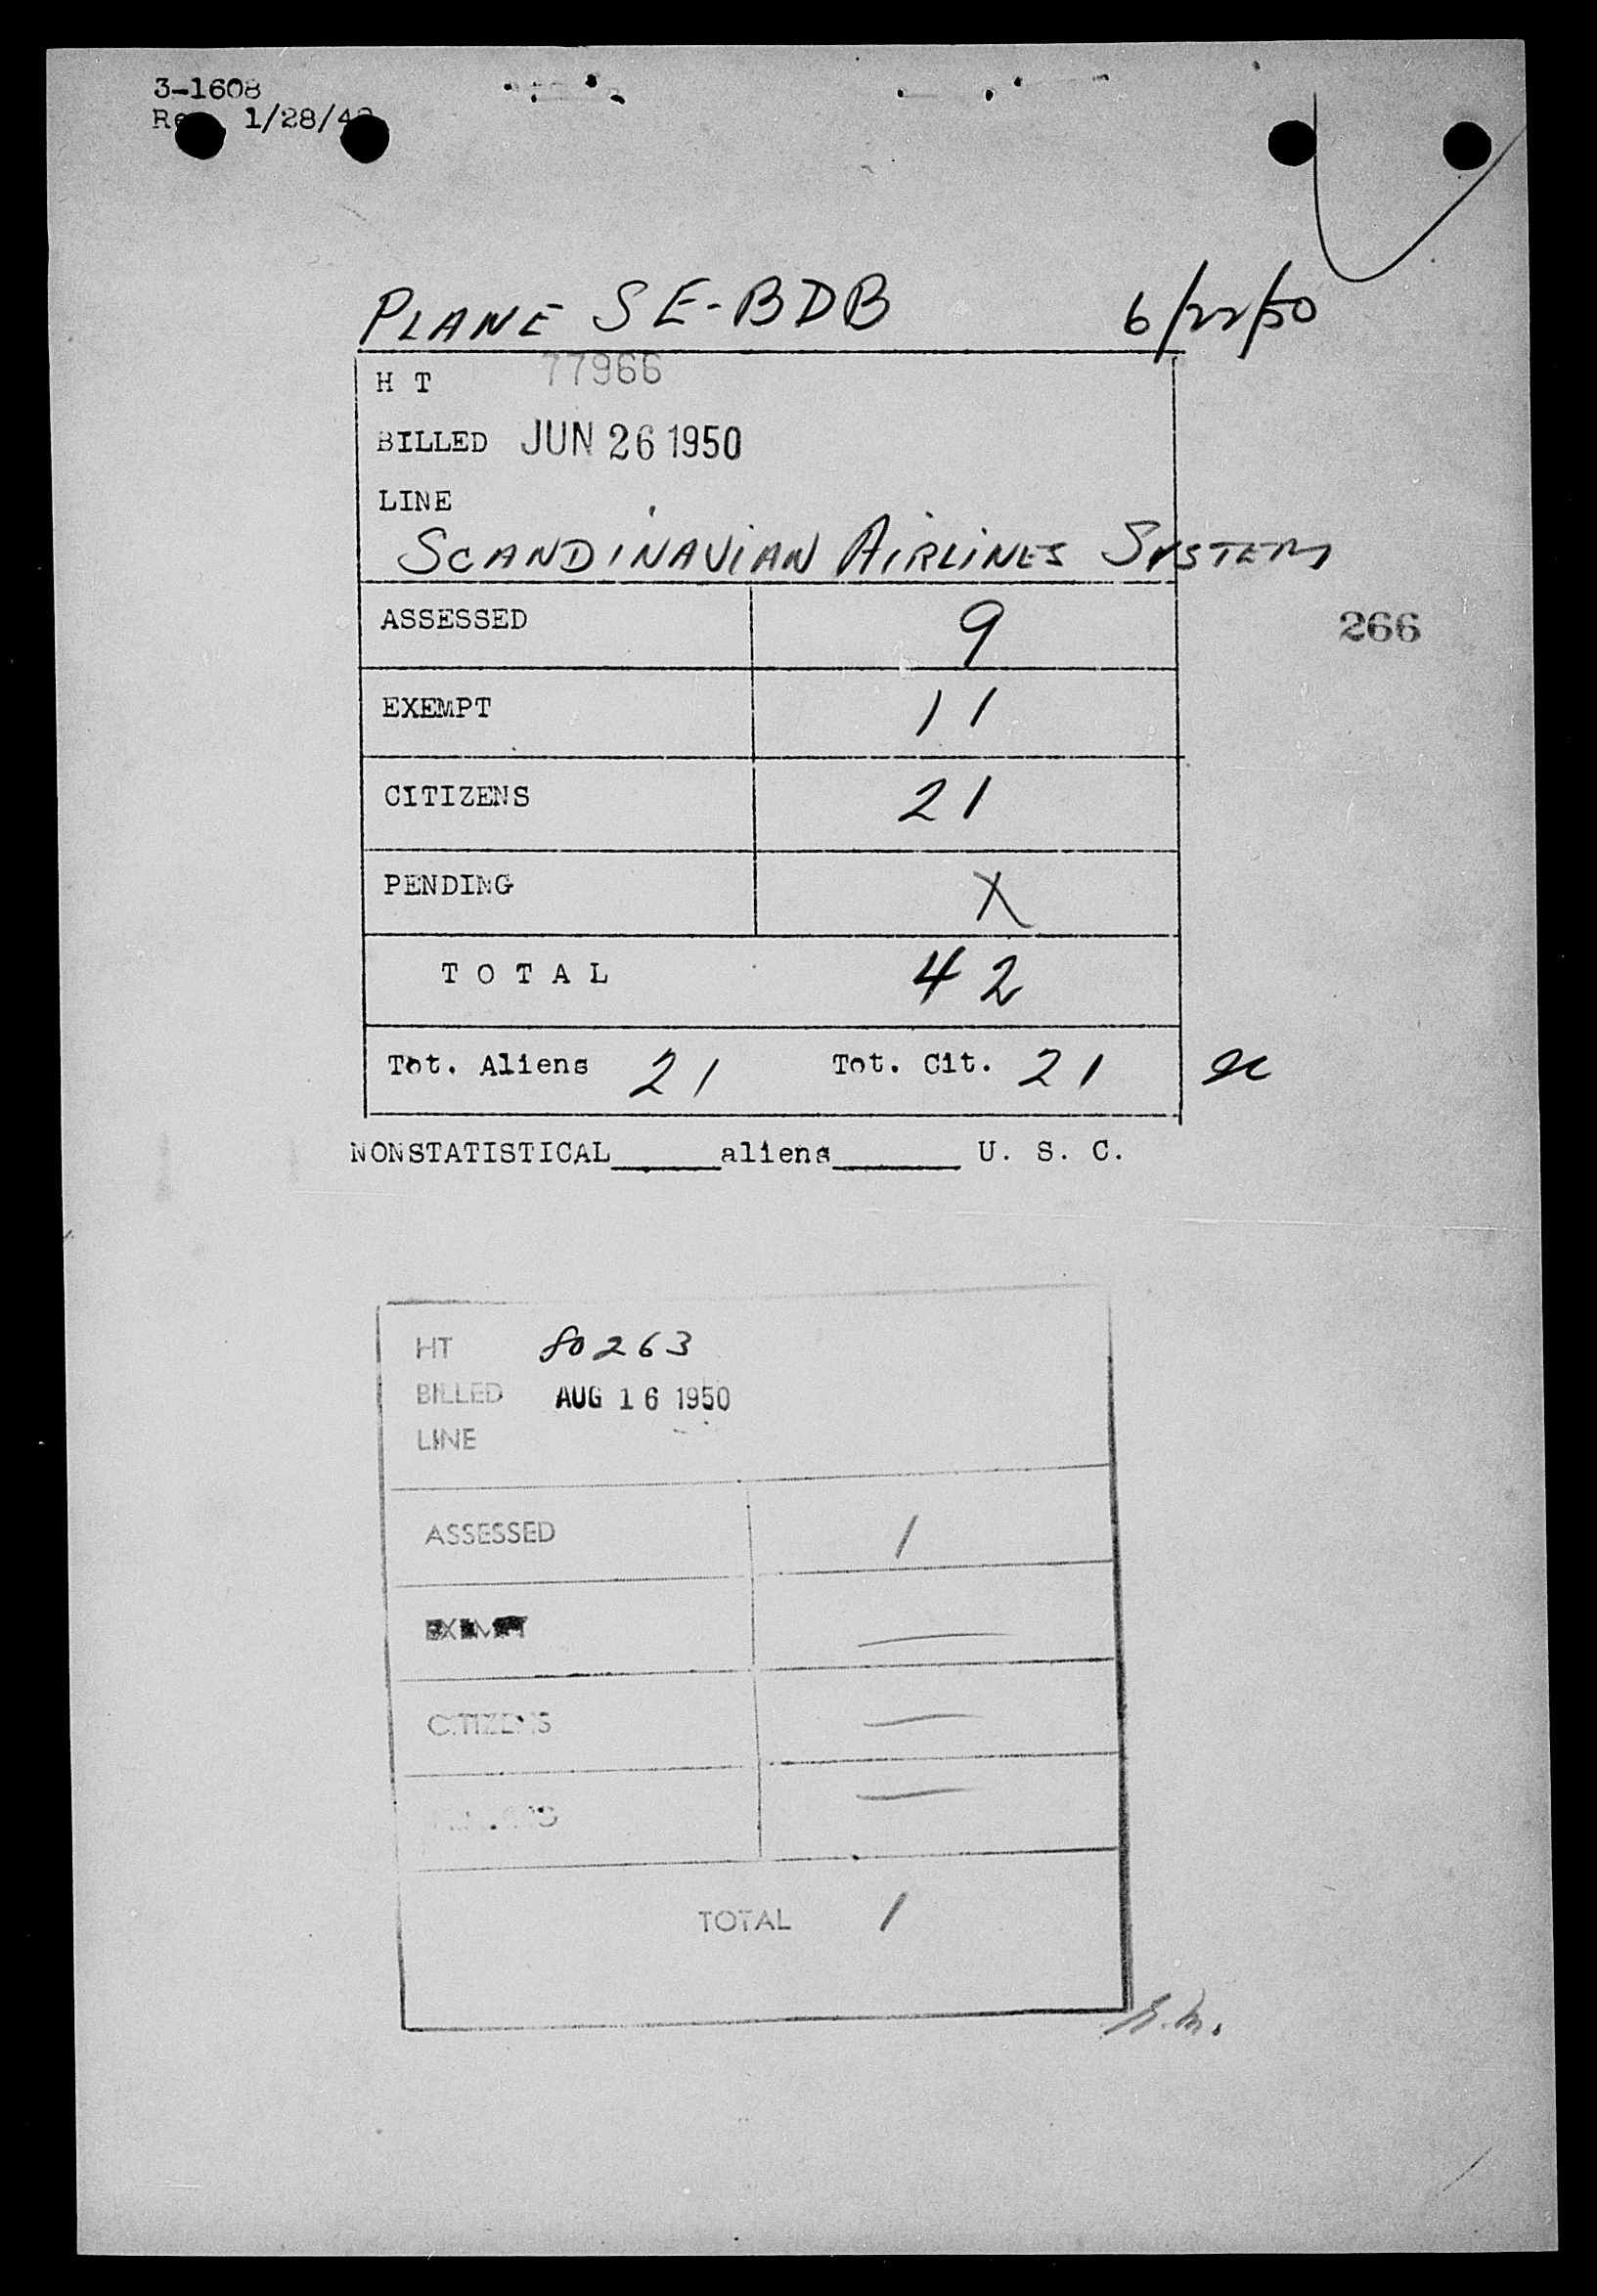 3-1608
1/28/48
PLANE SE-BDB 6/22/50
H T 77966
BILLED JUN 26 1950
LINE
SCANDINAVIAN AIRLINES SYSTEM
ASSESSED 9
266
EXEMPT 11
CITIZENS 21
PENDING X
T O T A L 42
Tot. Aliens 21 Tot. Cit. 21
NONSTATISTICAL______aliens_______ U. S. C.
HT 80263
BILLED AUG 16 1950
LINE
ASSESSED 1
EXEMPT —
CITIZENS —
—
TOTAL 1